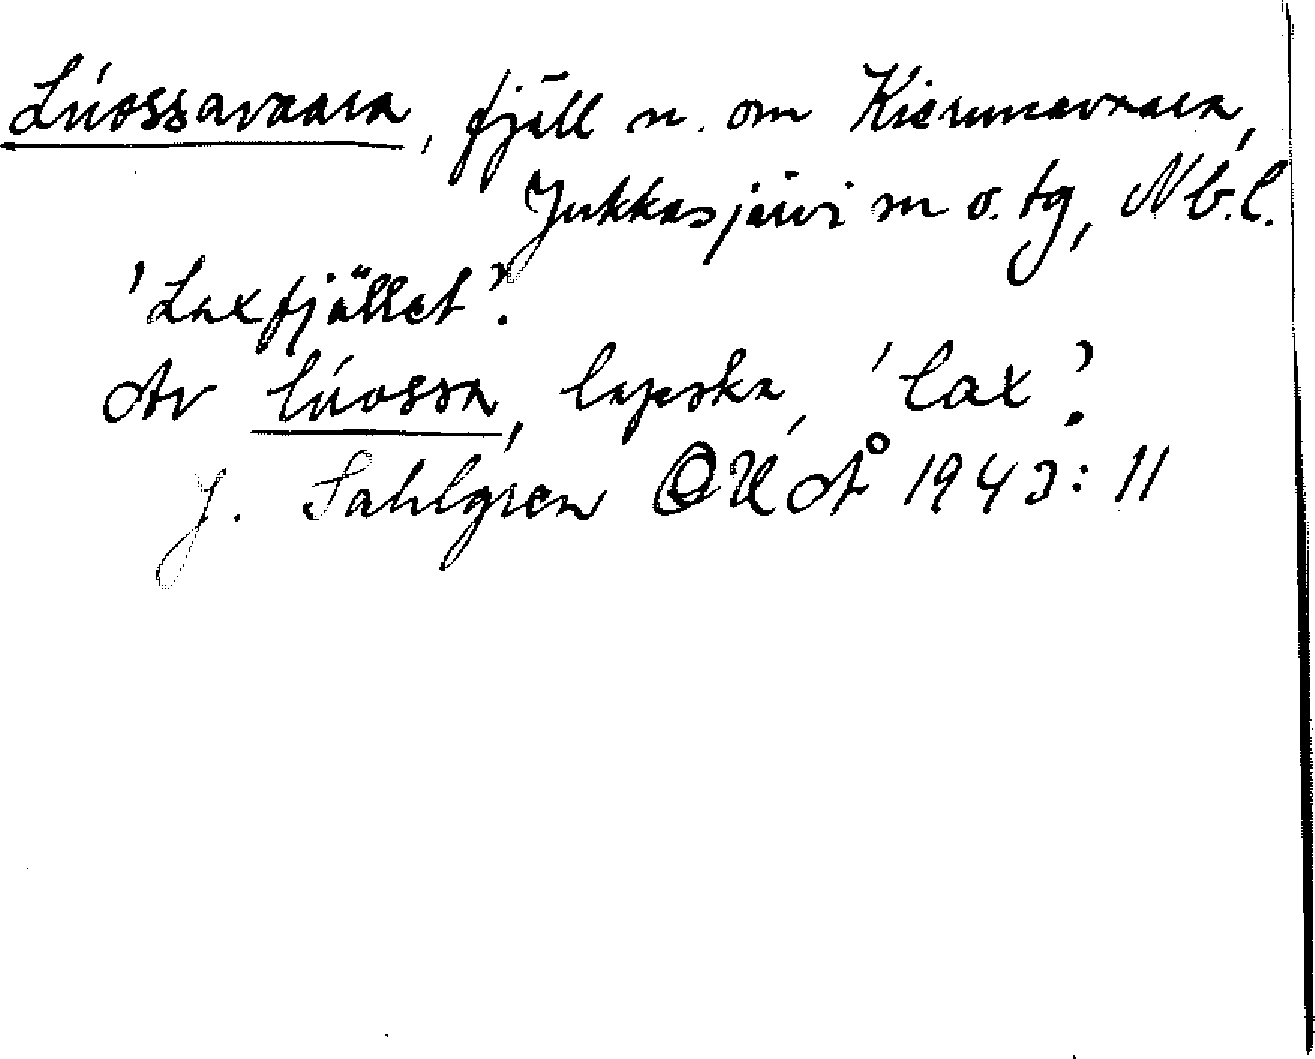 Lúossavaara, fjäll n. om Kierunavaara,
Jukkasjärvi sn o. tg, Nb.l.
'Laxfjället'.
Av lúossa, lapska, 'lax'.
J. Sahlgren OUÅ 1943: 11